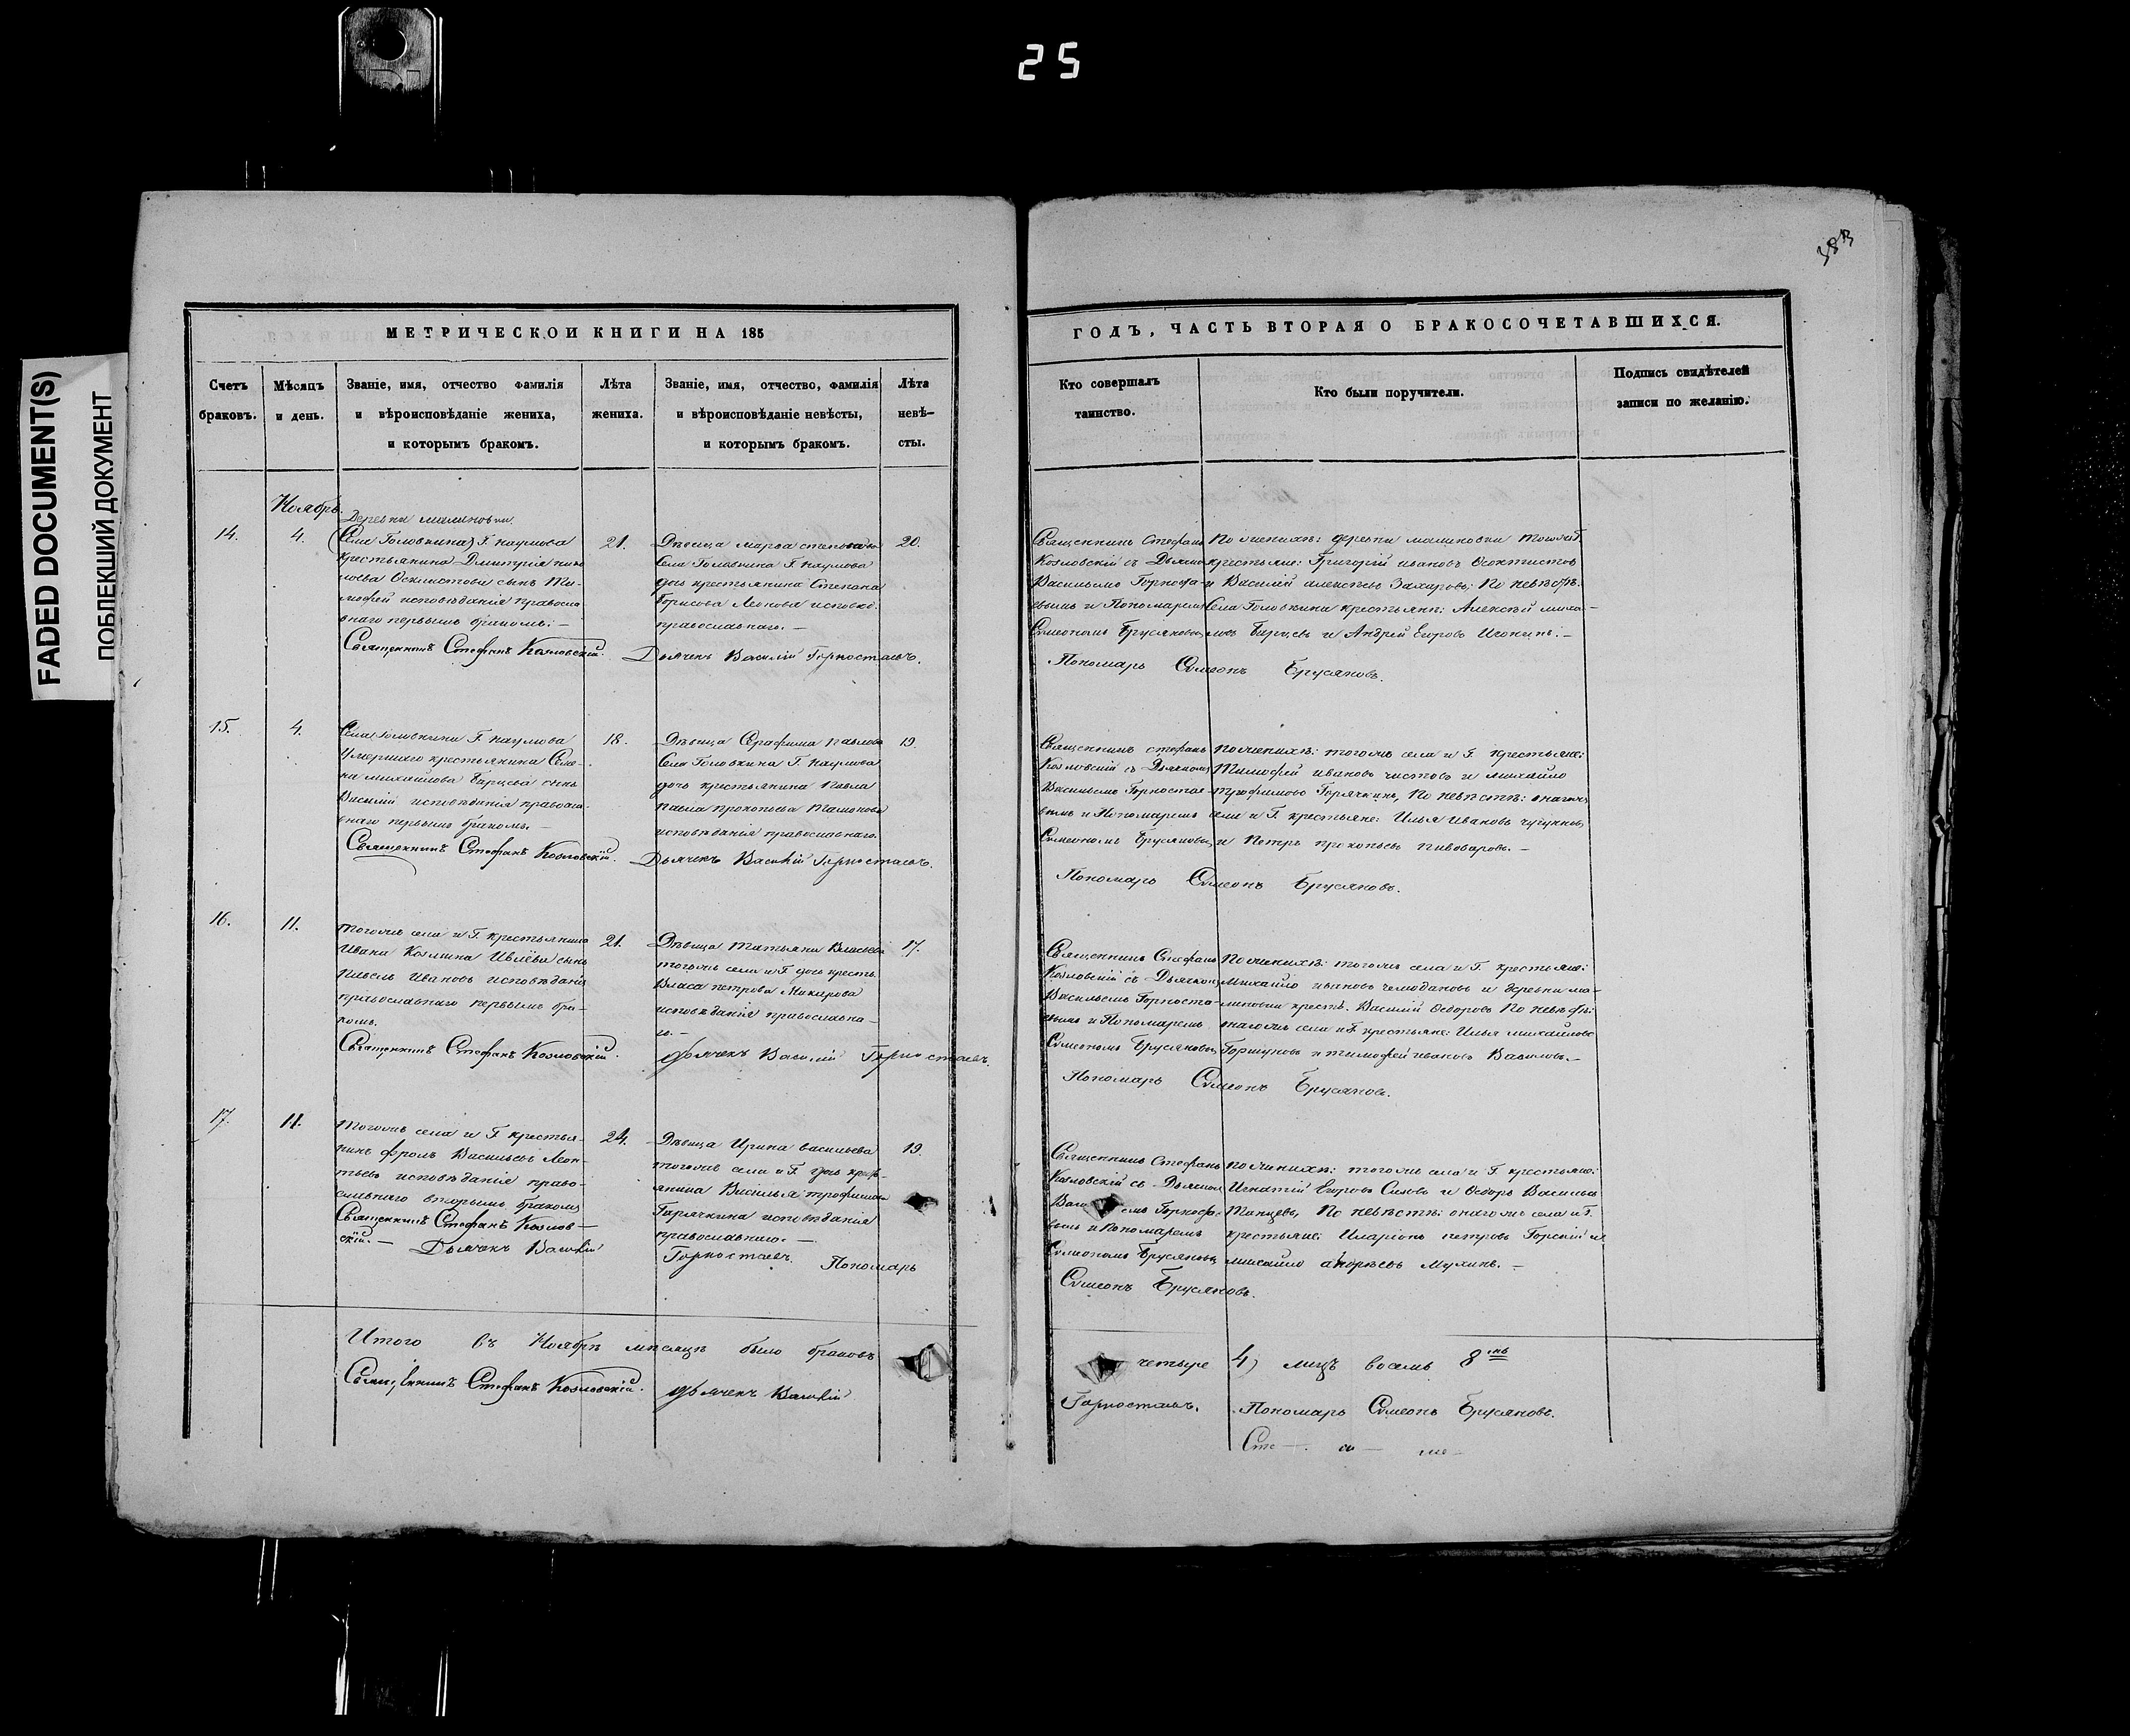 25
FADED DOCUMENT(S)
ПОБЛЕКШИЙ ДОКУМЕНТ
383
МЕТРИЧЕСКОЙ КНИГИ НА 185
Счетъ браковъ.
Мѣсяцъ и день.
Званіе, имя, отчество фамилія
и вѣроисповѣданіе жениха,
и которымъ бракомъ.
Лѣта жениха.
Званіе, имя, отчество, фамилія
и вѣроисповѣданіе невѣсты,
и которымъ бракомъ.
Лѣта невѣ-
сты.
ГОДЪ, ЧАСТЬ ВТОРАЯ О БРАКОСОЧЕТАВШИХСЯ.
Кто совершалъ
таинство.
Кто были поручители.
Подпись свидѣтелей
записи по желанію.
Ноябрь.
14.
4.
Деревни малиновки
(Села Головкина) Г. наумова
крестьянина Дмитрія
сынъ Ти-
мофей исповѣданія правосла-
внаго первымъ бракомъ. —
21.
Дѣвица марѳа степанова
Села Головкина Г. Наумова
дочь крестьянина Степана
Борисова Леонова исповѣд.
православнаго. —
20.
Священникъ Стефанъ
Козловскій съ Дьячкомъ
Васильемъ Горноста-
евымъ и Пономаремъ
Симеономъ Брусяновымъ
По женихѣ: деревни малиновки тогожъ Г.
крестьяне: Григорій ивановъ Ѳеоктистовъ
и Василій алексѣевъ Захаровъ, По невѣстѣ:
Села Головкина крестьяне: Алексѣй михаи-
ловъ Барцевъ и Андрей Егоровъ —
Священникъ Стефанъ Козловскій. Дьячекъ Василій Горностаевъ.
Пономарь Симеонъ Брусяновъ.
15.
4.
Села Головкина Г. наумова
Умершаго крестьянина Семе-
на михайлова Барцева сынъ
Василій исповѣданія правосла-
внаго первымъ бракомъ. —
18.
Дѣвица Серафима павлова
Села Головкина Г. Наумова
дочь крестьянина Павла
Павла прокопьева
исповѣданія православнаго.
19.
Священникъ стефанъ
Козловскій съ Дьячкомъ
Васильемъ Горностае-
вымъ и Пономаремъ
Симеономъ Брусяновымъ
по женихѣ: тогожъ села и Г. крестьяне:
Тимофей ивановъ чистовъ и михайло
трофимовъ Горячкинъ, По невѣстѣ: онагожъ
села и Г. крестьяне: Илья Ивановъ чугуновъ
и Петръ прокопьевъ пивоваровъ. —
Священникъ Стефанъ Козловскій. Дьячекъ Василій Горностаевъ.
Пономарь Симеонъ Брусяновъ.
16.
11.
тогожъ села и Г. крестьянина
Ивана Козмина Ивлева сынъ
павелъ Ивановъ исповѣданія
православнаго первымъ бра-
комъ.
21.
Дѣвица татьяна Власьева
тогожъ села и Г. дочь кресть.
Власа петрова Макарова
исповѣданія православна-
го. —
17.
Священникъ Стефанъ
Козловскій съ Дьячкомъ
Васильемъ Горноста-
евымъ и Пономаремъ
Симеономъ Брусяновымъ
По женихѣ: тогожъ села и Г. крестьяне:
Михайло ивановъ чемодановъ и деревни ма-
линовки крест. Василій Ѳедоровъ По невѣстѣ:
онагожъ села и Г. крестьяне: Илья михайловъ
Горшуновъ и тимофей ивановъ Вавиловъ. —
Священникъ Стефанъ Козловскій. Дьячекъ Василій Горностаевъ.
Пономарь Симеонъ Брусяновъ.
17.
11.
тогожъ села и Г крестья-
нинъ фролъ Васильевъ Леон-
тьевъ исповѣданія право-
славнаго вторымъ бракомъ
24.
Дѣвица Ирина васильева
тогожъ села и Г. дочь крест-
янина Василья трофимова
Горячкина исповѣданія
православнаго. —
19.
Священникъ Стефанъ
Козловскій съ Дьячкомъ
Горноста-
вымъ и Пономаремъ
Симеономъ Брусяновымъ
по женихѣ: тогожъ села и Г крестьяне:
Игнатій Егоровъ Сизовъ и Ѳедоръ Васильевъ
Танцевъ, По невѣстѣ: онагожъ села и Г.
крестьяне: Иларіонъ петровъ Горскій и
михайло андреевъ Мухинъ. —
Священникъ Стефанъ Козлов-
скій. — Дьячекъ Василій Горностаевъ. Пономарь
Симеонъ Брусяновъ.
Итого въ Ноябрѣ мѣсяцѣ было браковъ четыре 4) лицъ восемь 8
Священникъ Стефанъ Козловскій. Дьячекъ Василій Горностаевъ. Пономарь Симеонъ Брусяновъ.